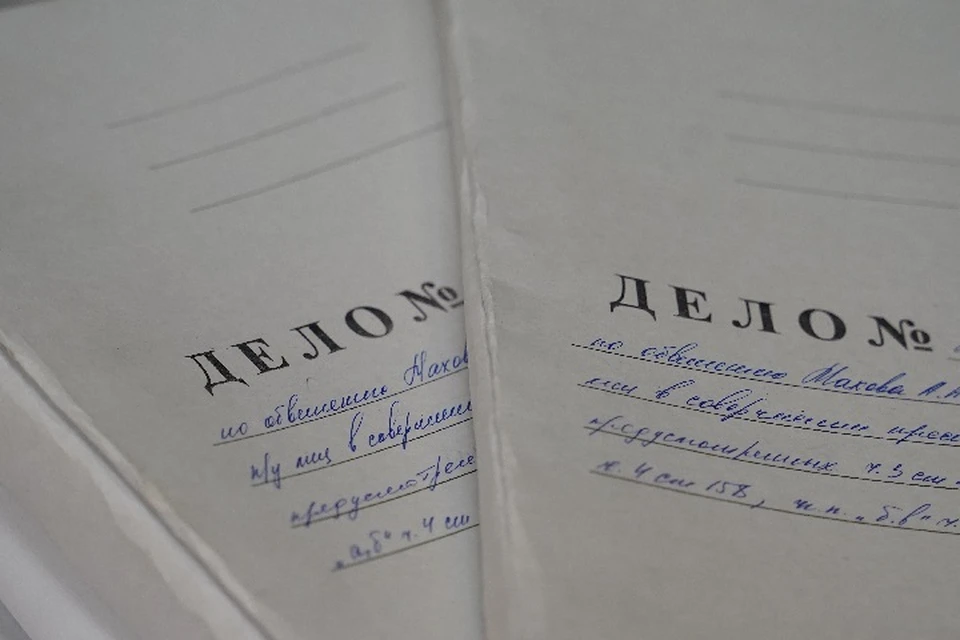 ДЕЛО №
по обвинению Махов
др лиц в совершени
предусмотрен
"а,б" ч. 4 ст
ДЕЛО №
по обвинению Махова А.А
лиц в совершении прес
предусмотренных ч. 3 ст
ч. 4 ст 158, п.п. "б.в" ч.